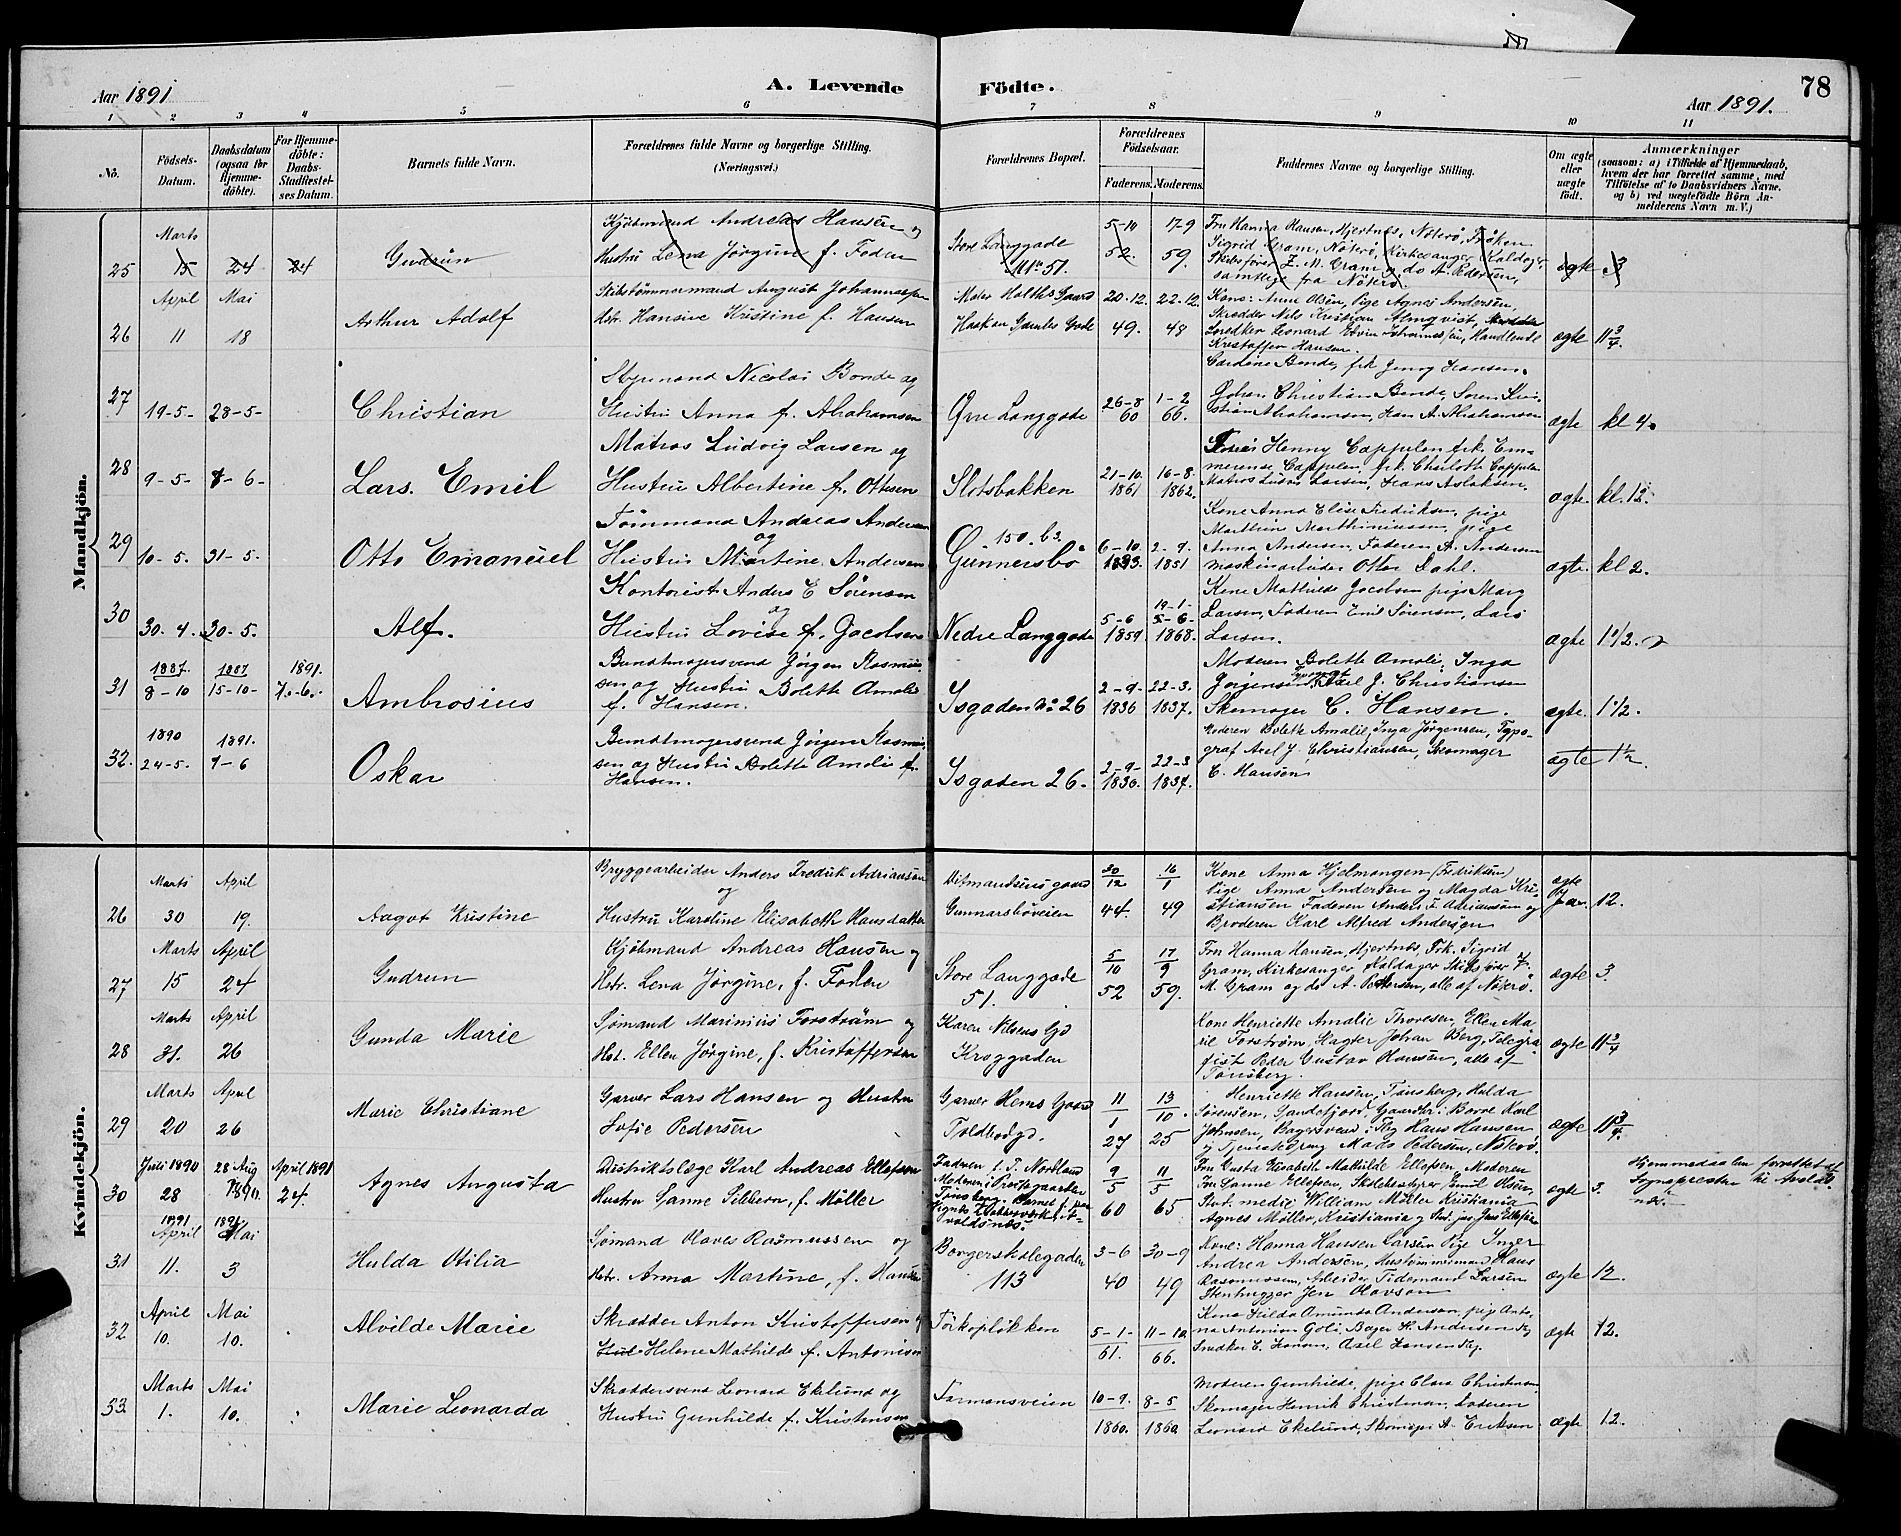 Aar 1891
A. Levende Födte.
78
Aar 1891.
1 2 3 4 5 6 7 8 9 10 11
No.
Födsels-Datum.
Daabsdatum (ogsaa for Hjemme-döbte).
For Hjemme-döbte: Daabs-Stadfæstel-ses Datum.
Barnets fulde Navn.
Forældrenes fulde Navne og borgerlige Stilling. (Næringsvei.)
Forældrenes Bopæl.
Forældrenes Födselsaar.
Faderens. Moderens.
Faddernes Navne og borgerlige Stilling.
Om ægte eller uægte födt.
Anmærkninger
(saasom: a) i Tilfælde af Hjemmedaab, hvem der har forrettet samme, med Tilföielse af to Daabsvidners Navne, og b) ved uægtefödte Börn Anmelderens Navn m. V.)
Mandkjön.
Marts
25 15 24 24 Gudrün
Kjöbmand Andreas Hansen og
Hustru Lena Jørgine f. Foden
Store Langgade
No 51.
5-10 17-9
52. 59.
Fru Hanna Hansen, Hjertnes, Nøterø, Frøken
Sigrid Gram, Nøterø, Kirkesanger Kaldager,
Skibsfører Z. M. Gram og do A. Pedersen,
samtlige fra Nøterø.
ægte 3
April Mai
26 11 18 Arthur Adolf
Skibstømmermand August Johannessen
Hstr. Hansine Kristine f. Hansen
Haakon Gamles Gade
20-12. 22-12.
49. 48
Kone: Anne Olsen, Pige Agnes Andersen,
Skrædder Nils Kristian Almqvist,
Snedker Leonard Edvin Johannessen, Handlende
Kristoffer Hansen.
ægte 11 3/4.
27 19-5- 28-5- Christian
Styrmand Nicolai Bonde og
Hustru Anna f. Abrahamsen
Øvre Langgade
26-8 1-2
60 66.
Cardine Bende, frk Jenny Hansen.
Johan Christian Bende, Søren Kri-
stian Abrahamsen, Hans A. Abrahamsen
ægte kl 4.
28 9-5- 7-6- Lars. Emil
Matros Ludvig Larsen og
Hustru Albertine f. Ottesen
Slotsbakken
21-10. 16-8.
1861 1862.
Henny Cappelen frk. Em-
merense Cappelen, frk. Charlotte Cappelen
Matros Ludv. Larsen, Hans Aslaksen.
ægte. kl. 12.
29 10-5. 31-5. Otto Emanuel
Tömmand Andreas Andersen
og
Hustru Martine Andersen
Ø. 150. b3.
Gunnersbø
6-10 2-7.
1853. 1851
Kone Anna Elise Fredriksen, pige
Marthine Marthiniussen, pige
Anna Andersen, Faderen A. Andersen
maskinarbeider Otto Dahl.
ægte. kl 2.
30 30-4. 30-5. Alf.
Kontorist Anders E Sörensen
og
Hustru Lovise f. Jacobsen
Nedre Langgade
5-6 19-1-
1859 5-6-
1868.
Kone Mathilde Jacobsen pige Mary
Larsen, Faderen Emil Sørensen, Lars
Larsen.
ægte 1 1/2.
1887. 1887 1891.
31 8-10 15-10- 7-6- Ambrosius
Bundtmagersvend Jørgen Rasmus-
sen og Hustru Bolette Amalie
f. Hansen.
Isgaden No 26
2-9- 22-3.
1836 1837.
Moderen Bolette Amalie, Inga
Jørgensen, Typograf Axel J. Christiansen
Skomager C. Hansen.
ægte. 1 1/2.
1890 1891.
32. 24-5. 7-6 Oskar
Bundtmagersvend Jørgen Rasmus-
sen og Hustru Bolette Amalie f.
Hansen.
Isgaden 26.
2-9- 22-3
1836. 1837.
Moderen Bolette Amalie, Inga Jørgensen, Typo-
graf Axel J. Christiansen, Skomager
C. Hansen
ægte 1 1/2.
Kvindekjön.
Marts April
26 30 19. Aagot Kristine
Bryggearbeider Anders Fredrik Adriansen
og
Hustru Karoline Elisabeth Hansdatter
Gunnarsbøveien
30/12 16/1
44. 49
Kone Anna Hjelmangen (Fredriksen)
Pige Anna Andersen og Magda Kri-
stiansen Faderen Anders F. Adriansen og
Broderen Karl Alfred Andersen
ægte 12.
Marts April
27 15 24 Gudrun
Kjöbmand Andreas Hansen og
Hstr. Lena Jørgine, f. Foden
Store Langgade
51.
5/10 17/9
52 59.
Fru Hanna Hansen, Hjertnes, Frk. Sigrid
Gram, Kirkesanger Kaldager Skibsfører Z.
M. Gram og do A. Pettersen, alle af Nøterø.
ægte 3.
Marts April
28 31. 26 Gunda Marie
Sjømand Marinius Forström og
Hst. Ellen Jørgine, f. Kristoffersen
Karen Nilsens Gd
Kroggaden
Kone Henriette Amalie Thoresen, Ellen Ma-
rie Forstrøm, Vagter Johan Berg, Telegra-
fist Peder Gustav Hansen, alle af
Tønsberg.
ægte 11 3/4
Marts April
29 20 26 Marie Christiane
Garver Lars Hansen og Hustru
Sofie Pedersen
Garver Hems Gaard
Toldbodgd.
11/1 13/10.
27 25
Henriette Hansen, Tønsberg, Hulda
Sørensen, Sandefjord, Gaardbr. i Borre Karl
Johnsen, Bagersvend i Tbg Hans Hansen
og Tjenestedreng Mads Pedersen, Nøterø.
ægte 11 3/4.
Juli 1890 28 Aug April 1891
30 28 1890. 24. Agnes Augusta
Distriktslæge Karl Andreas Ellefsen
Hustru Sanne Sibbern, f. Møller
Faderen i T. Nordland
Moderen i Provstegaarden
Tønsberg.
9/5 11/5
60 65
Fru Gusta Elisabeth Mathilde Ellefsen, Moderen
Fru Sanne Ellefsen, Skolebestyrer Emil Olsen,
Stud. medic William Møller Kristiania
Agnes Møller, Kristiania og Stud. jur. Jens Ellefsen
ægte 3.
Hjemmedaaben forrettet af
Sognepresten
1891 1891
April Mai
31 11. 3 Hulda Otilia
Sjømand Olaves Rasmussen og
Hstr. Anna Martine, f. Hansen
Borgerskolegaden
113
3-6 30-9
40 49
Kone: Hanna Hansen Larsen Pige Inger
Andrea Andersen, Hustømmermand Hans
Rasmussen, Arbeider Tidemand Larsen
Stenhugger Jen Olavson
ægte 12.
April Mai
32 10. 10. Alvilde Marie
Skrædder Anton Kristoffersen og
Hust. Helene Mathilde f. Antonisen
Torkopløkken
5-1- 11-10
61. 66.
Kone Hilda Amunda Andersen, pige Anto-
na Antonsen Goli, Bager H. Andersen
Snedker E. Hansen, Axel Hansen Tbg.
ægte 12.
Marts Mai
33. 1. 10. Marie Leonarda
Skræddersvend Leonard Ekelund og
Hustru Gunhilde f. Kristensen
Farmansveien
10-9. 8-5
1860. 1860
Moderen Gunhilde, pige Clara Christensen
Skomager Henrik Christensen, Faderen
Leonard Ekelund, Skomager A. Eriksen
ægte 12.